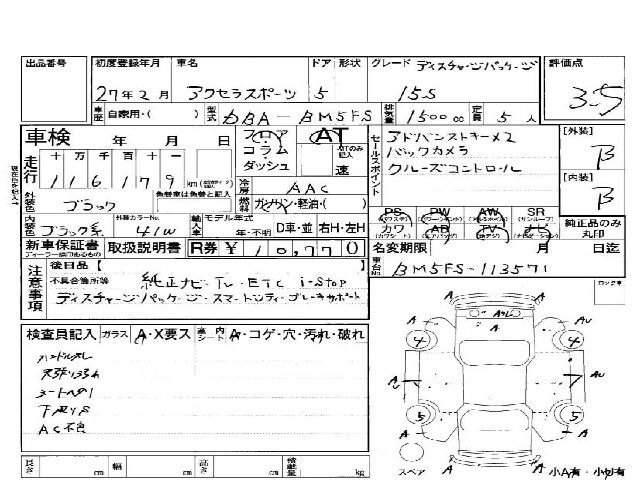 出品番号 初度登録年月 車名 ドア 形状 グレード ディスチャージパッケージ 評価点
27年2月 アクセラスポーツ 5 15S 3.5
車歴 自家用・( ) 型式 DBA-BM5FS 排気量 1500cc 定員 5人
車検 年 月 日 フロア コラム・ダッシュ AT ATのみ記入 速 セールスポイント アドバンストキー×2 [外装] B
バックカメラ
クルーズコントロール
走行 十 万 千 百 十 一
116179 km 冷房 AAC [内装] B
外装色 ブラック 色替車は色替と記入 燃料 ガソリン・軽油・( )
PS PW AW SR
カワ AB TV ナビ 純正品のみ丸印
内装色 ブラック系 外装カラーNo. 41W 輸入車 モデル年式 年・不明 D車・並 右H・左H
新車保証書 取扱説明書 R券 ¥10,770 名変期限 月 日迄
注意事項 後日品【 】 車台No. BM5FS-113571
不具合箇所等 純正ナビ・TV・ETC i-stop
ディスチャージパッケージ・スマートシティブレーキサポート
検査員記入 ガラス A・X要ス 車内シート A・コゲ・穴・汚れ・破れ
下廻りS
AC不良
長さ cm 幅 cm 高さ cm 積載量 kg
ロック車
A A A
AU AU
4 4
A AU 7 AU
5 5
A A A A
スペア 小A有・小凹有